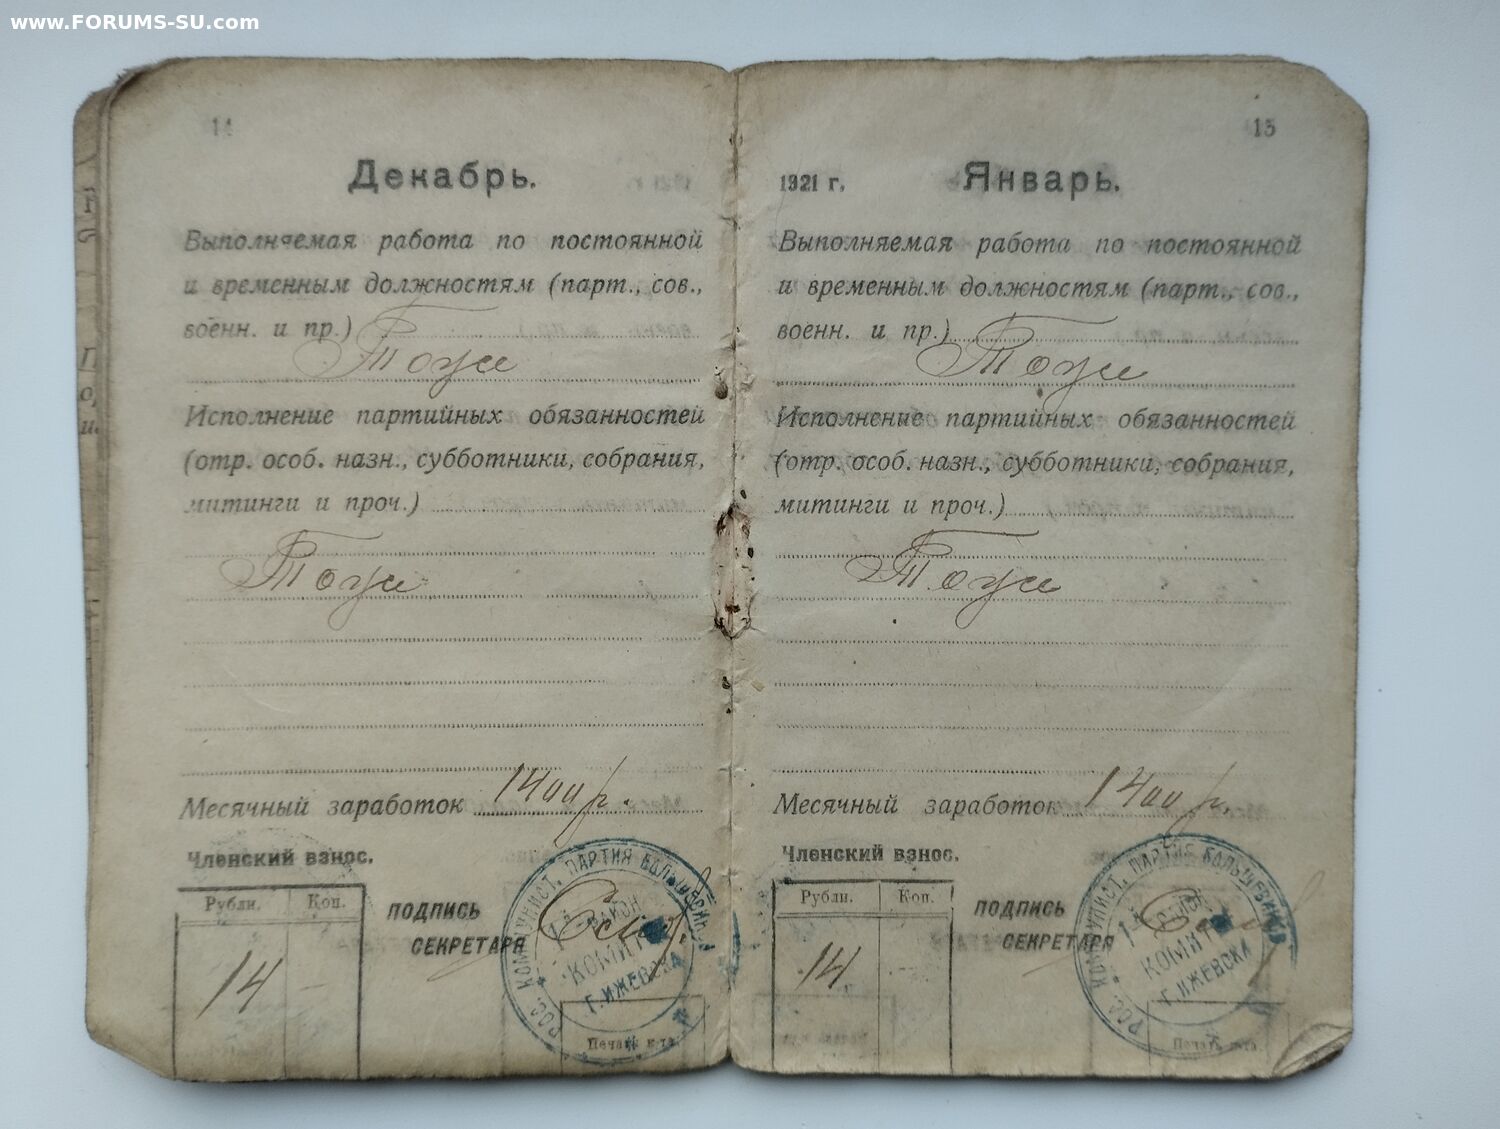 www.FORUMS-SU.com
14
Декабрь.
Выполняемая работа по постоянной
и временным должностям (парт., сов.,
военн. и пр.)
Тоже
Исполнение партийных обязанностей
(отр. особ. назн., субботники, собрания,
митинги и проч.)
Тоже
Месячный заработок 1400 р.
Членский взнос.
Рубли. Коп.
14 —
ПОДПИСЬ
СЕКРЕТАРЯ
РОС. КОМУНИСТ. ПАРТИЯ БОЛЬШЕВИКОВ
1й РАЙОН
КОМИТ
Г. ИЖЕВСКА
Печать к-та.
15
1921 г. Январь.
Выполняемая работа по постоянной
и временным должностям (парт., сов.,
военн. и пр.)
Тоже
Исполнение партийных обязанностей
(отр. особ. назн., субботники, собрания,
митинги и проч.)
Тоже
Месячный заработок 1400 р.
Членский взнос.
Рубли. Коп.
14
ПОДПИСЬ
СЕКРЕТАРЯ
РОС. КОМУНИСТ. ПАРТИЯ БОЛЬШЕВИКОВ
1й
КОМИТ
Г. ИЖЕВСКА
Печать к-та.